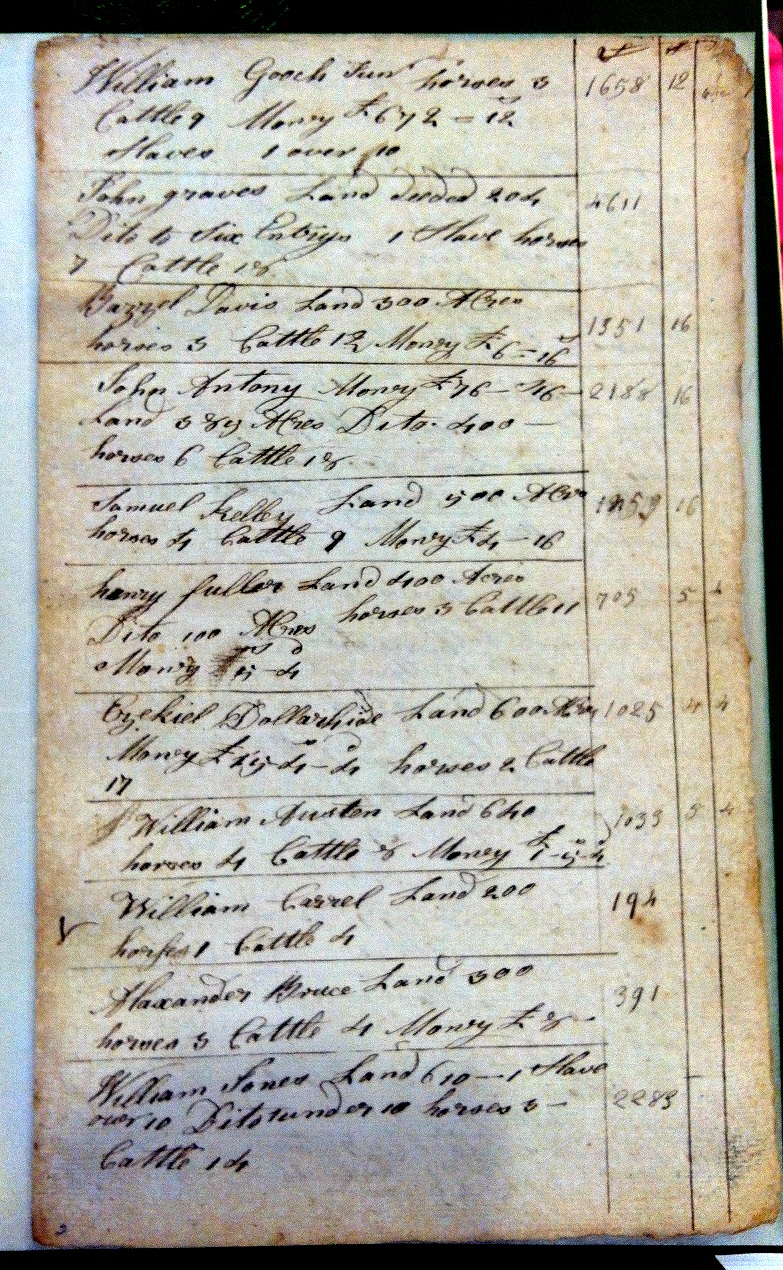 £
William Gooch Junr horses 3 1658 12
Cattle 9 Money £672=12
Slaves 1 over 10
John graves Land deeded 204 4611
Dito to Six Entrys 1 Slave horses
7 Cattle 18
Davis Land 300 Acres
horses 3 Cattle 12 Money £6=16 1351 16
John Antony Money £76-16- 2188 16
Land 389 Acres Dito. 400-
horses 6 Cattle 18
Samuel Kelley Land 500 Acres 16
horses 4 Cattle 9 Money £4-16
henry fuller Land 400 Acres
Dito 100 Acres horses 3 Cattle 11 705 5 4
Money 5-4
Ezekiel Dollarhide Land 600 Acres 1025 4 4
Money £ 4-4 horses 2 Cattle
17
William Austen Land 640 1033 5 4
horses 4 Cattle 8 Money £1-5-4
William Carrel Land 200 194
horses 1 Cattle 4
Alaxander Bruce Land 300 391
horses 3 Cattle 4 Money £8-
William Jones Land 610-1 Slave
over 10 Dito 1 under 10 horses 3- 2283
Cattle 14